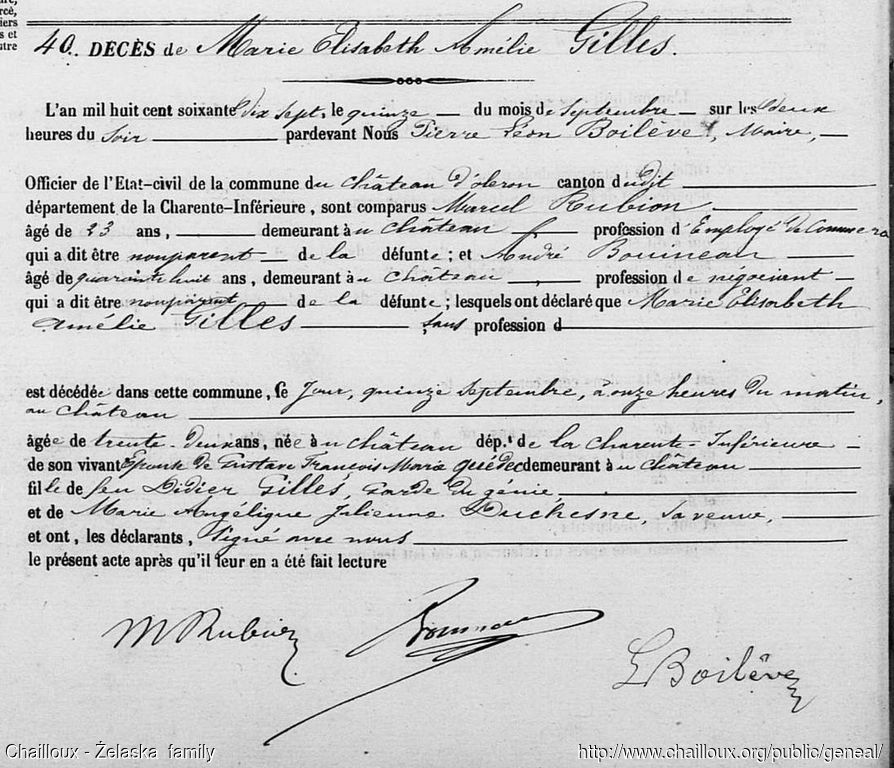 40. DÉCÈS de Marie Elisabeth Amélie Gilles.
L'an mil huit cent soixante Dix sept, le quinze du mois de Septembre sur les deux
heures du Soir pardevant Nous Pierre Léon Boilève, Maire,
Officier de l'Etat-civil de la commune du château d'oleron canton dudit
département de la Charente-Inférieure, sont comparus Marcel Rubion
âgé de 23 ans, demeurant à u château profession d'Employé De Commerce
qui a dit être nonparent de la défunte ; et André Bouineau
âgé de quarante huit ans, demeurant à u château profession de négociant
qui a dit être nonparent de la défunte ; lesquels ont déclaré que Marie Elisabeth
Amélie Gilles sans profession d
est décédée dans cette commune, ce Jour, quinze septembre, à onze heures du matin,
au château
âgée de trente-deux ans, née à u château dép.t de la charente-Inférieure
de son vivant Epouse de Gustave François Marie Quédec demeurant à u château
fille de feu Didier Gilles, Garde du génie,
et de Marie Angélique Julienne Duchesne, sa veuve,
et ont, les déclarants, signé avec nous
le présent acte après qu'il leur en a été fait lecture
M Rubion
Bouineau
L Boilève
Chailloux - Żelaska family
http://www.chailloux.org/public/geneal/